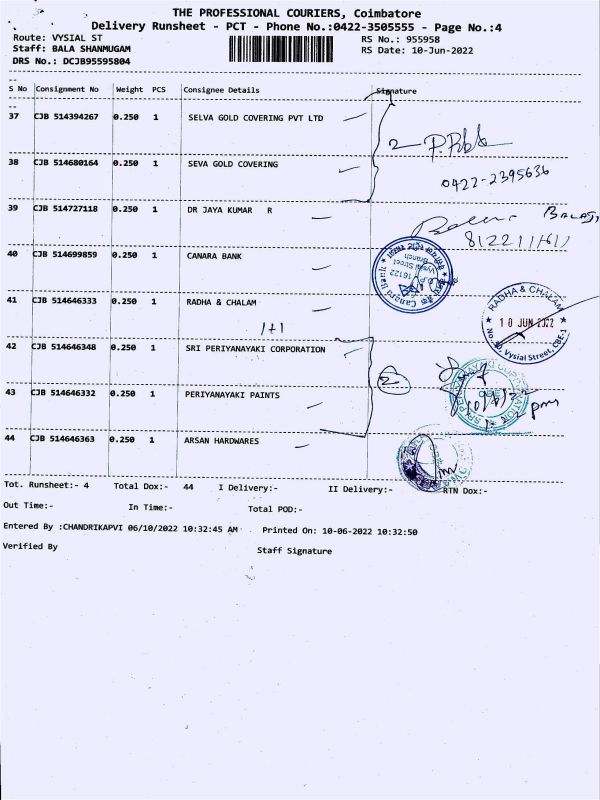 THE PROFESSIONAL COURIERS, Coimbatore
Delivery Runsheet - PCT - Phone No.:0422-3505555 - Page No.:4
Route: VYSIAL ST RS No.: 955958
Staff: BALA SHANMUGAM RS Date: 10-Jun-2022
DRS No.: DCJB95595804
S No Consignment No Weight PCS Consignee Details Signature
37 CJB 514394267 0.250 1 SELVA GOLD COVERING PVT LTD
2
38 CJB 514680164 0.250 1 SEVA GOLD COVERING
0422-2395636
39 CJB 514727118 0.250 1 DR JAYA KUMAR R
BALAJI
40 CJB 514699859 0.250 1 CANARA BANK
Canara Bank
16122
Vysial Street
Branch
41 CJB 514646333 0.250 1 RADHA & CHALAM
RADHA & CHALAM
10 JUN 2022
Vysial Street, CBE-1
1+1
42 CJB 514646348 0.250 1 SRI PERIYANAYAKI CORPORATION
2
43 CJB 514646332 0.250 1 PERIYANAYAKI PAINTS
44 CJB 514646363 0.250 1 ARSAN HARDWARES
Tot. Runsheet:- 4 Total Dox:- 44 I Delivery:- II Delivery:- RTN Dox:-
Out Time:- In Time:- Total POD:-
Entered By :CHANDRIKAPVI 06/10/2022 10:32:45 AM Printed On: 10-06-2022 10:32:50
Verified By Staff Signature